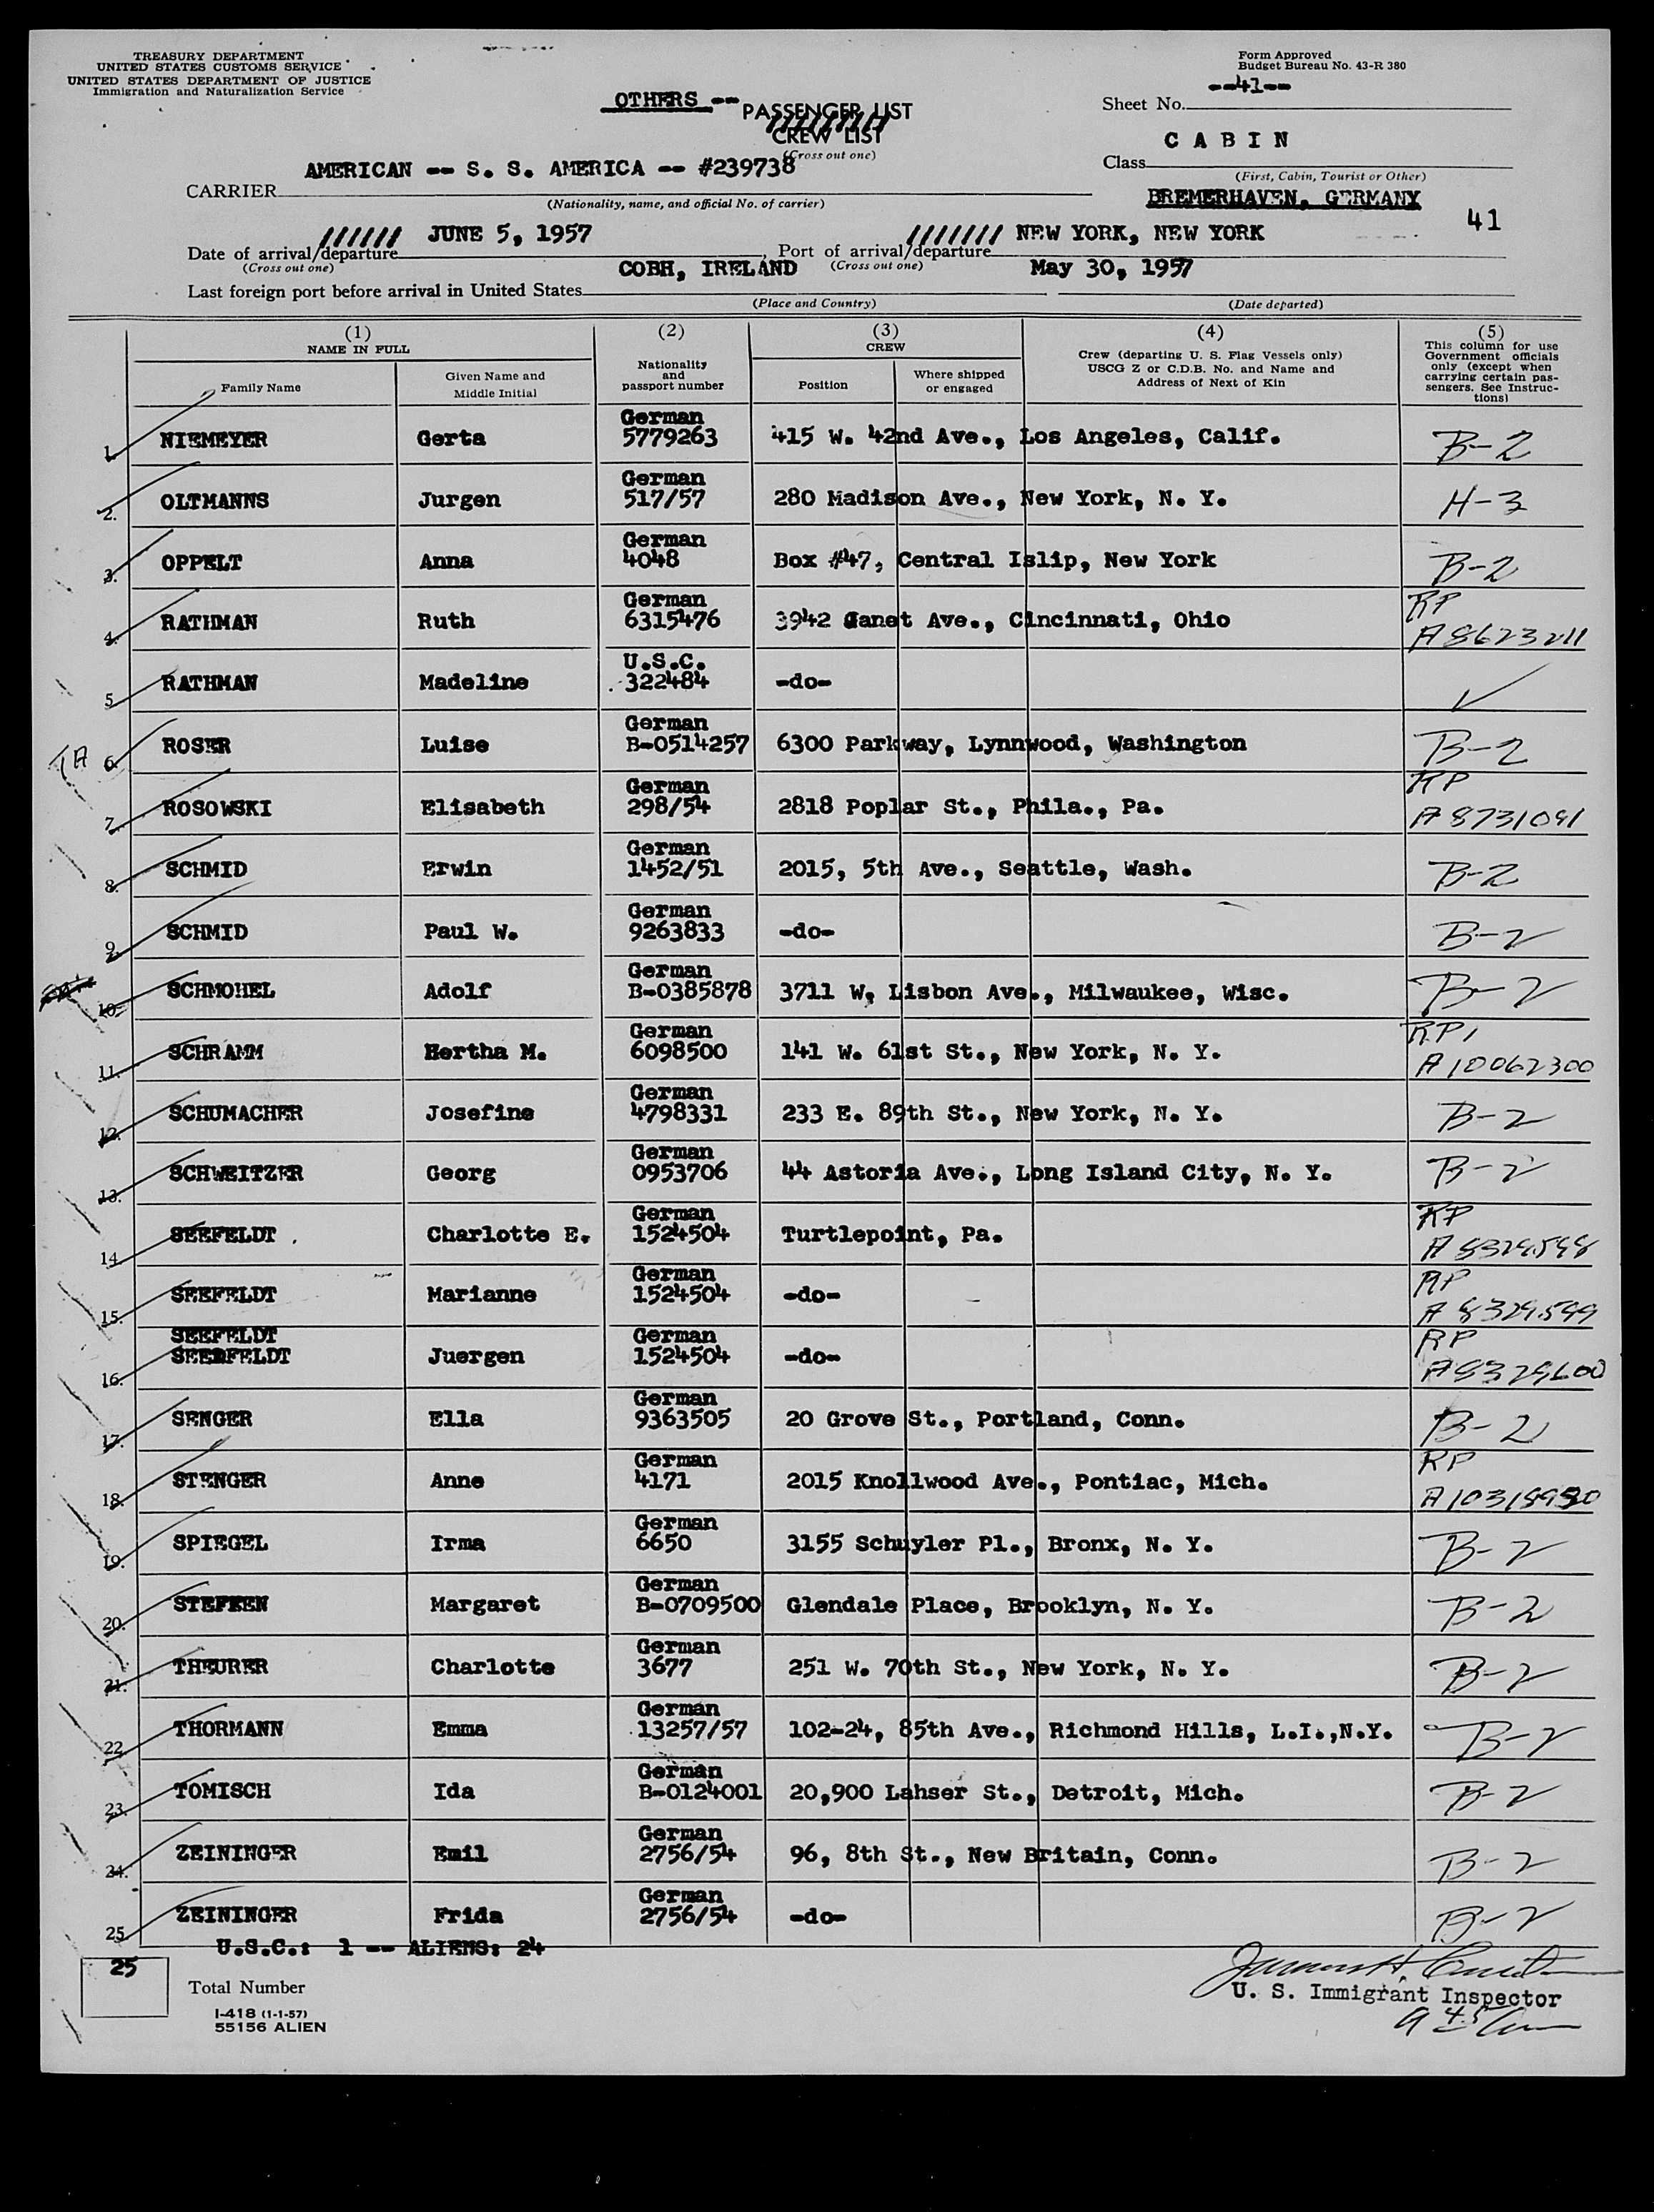 TREASURY DEPARTMENT
UNITED STATES CUSTOMS SERVICE
UNITED STATES DEPARTMENT OF JUSTICE
Immigration and Naturalization Service
Form Approved
Budget Bureau No. 43-R 380
OTHERS --
PASSENGER LIST
CREW LIST
(Cross out one)
Sheet No. --41--
CABIN
Class
(First, Cabin, Tourist or Other)
CARRIER AMERICAN -- S. S. AMERICA -- #239738
(Nationality, name, and official No. of carrier)
BREMERHAVEN, GERMANY
41
Date of arrival/departure JUNE 5, 1957 Port of arrival/departure NEW YORK, NEW YORK
(Cross out one) (Cross out one)
Last foreign port before arrival in United States COBH, IRELAND May 30, 1957
(Place and Country) (Date departed)
(1) (2) (3) (4) (5)
NAME IN FULL
Family Name
Given Name and
Middle Initial
Nationality
and
passport number
CREW
Position
Where shipped
or engaged
Crew (departing U. S. Flag Vessels only)
USCG Z or C.D.B. No. and Name and
Address of Next of Kin
This column for use
Government officials
only (except when
carrying certain pas-
sengers. See Instruc-
tions)
German
1. NIEMEYER Gerta 5779263 415 W. 42nd Ave., Los Angeles, Calif. B-2
German
2. OLTMANNS Jurgen 517/57 280 Madison Ave., New York, N. Y. H-3
German
3. OPPELT Anna 4048 Box #47, Central Islip, New York B-2
German RP
4. RATHMAN Ruth 6315476 3942 Ave., Cincinnati, Ohio A8623211
U.S.C.
5. RATHMAN Madeline 322484 -do- ✓
German
6. ROSER Luise B-0514257 6300 Parkway, Lynnwood, Washington B-2
German RP
7. ROSOWSKI Elisabeth 298/54 2818 Poplar St., Phila., Pa. A8731091
German
8. SCHMID Erwin 1452/51 2015, 5th Ave., Seattle, Wash. B-2
German
9. SCHMID Paul W. 9263833 -do- B-2
German
10. SCHMOHEL Adolf B-0385878 3711 W. Lisbon Ave., Milwaukee, Wisc. B-2
German RP
11. SCHRAMM Hertha M. 6098500 141 W. 61st St., New York, N. Y. A10062300
German
12. SCHUMACHER Josefine 4798331 233 E. 89th St., New York, N. Y. B-2
German
13. SCHWEITZER Georg 0953706 44 Astoria Ave., Long Island City, N. Y. B-2
German RP
14. SEEFELDT Charlotte E. 1524504 Turtlepoint, Pa. A8329598
German RP
15. SEEFELDT Marianne 1524504 -do- A8329599
SEEFELDT German RP
16. Juergen 1524504 -do- A8329600
German
17. SENGER Ella 9363505 20 Grove St., Portland, Conn. B-2
German RP
18. STENGER Anne 4171 2015 Knollwood Ave., Pontiac, Mich.
German
19. SPIEGEL Irma 6650 3155 Schuyler Pl., Bronx, N. Y. B-2
German
20. STEFFEN Margaret B-0709500 Glendale Place, Brooklyn, N. Y. B-2
German
21. THEURER Charlotte 3677 251 W. 70th St., New York, N. Y. B-2
German
22. THORMANN Emma 13257/57 102-24, 85th Ave., Richmond Hills, L.I.,N.Y. B-2
German
23. TOMISCH Ida B-0124001 20,900 Lahser St., Detroit, Mich. B-2
German
24. ZEININGER Emil 2756/54 96, 8th St., New Britain, Conn. B-2
German
25. ZEININGER Frida 2756/54 -do- B-2
U.S.C.: 1 -- ALIENS: 24
25
Total Number
U. S. Immigrant Inspector
I-418 (1-1-57)
55156 ALIEN